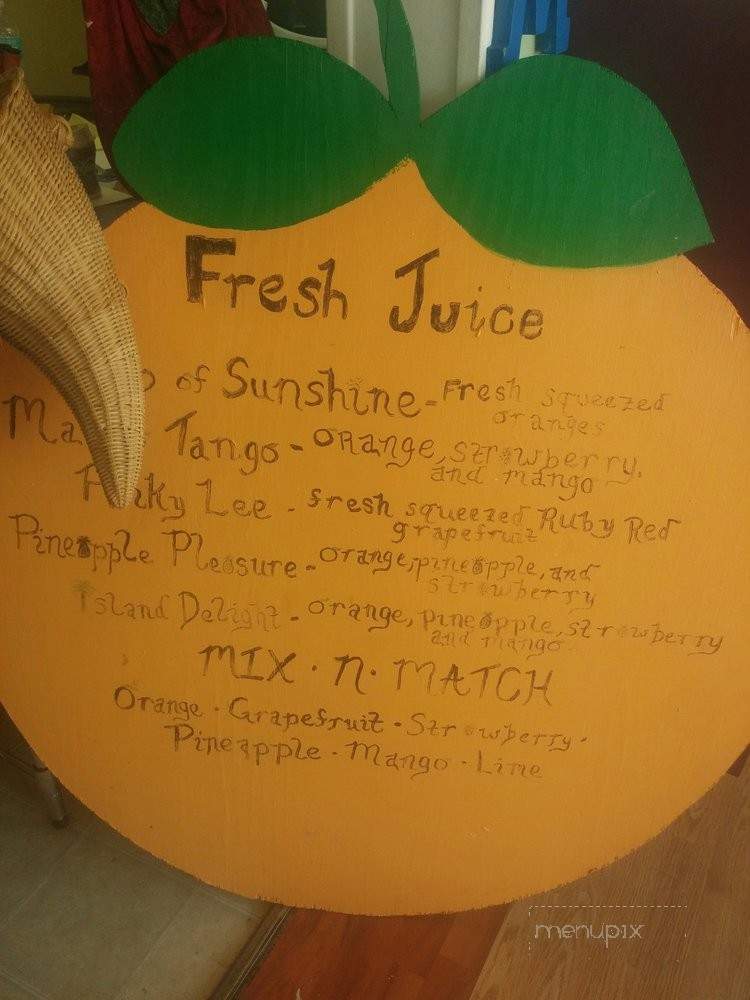 Fresh Juice
of Sunshine - Fresh squeezed
oranges
Tango - Orange, strawberry,
and mango
Pinky Lee - fresh squeezed Ruby Red
grapefruit
Pineapple Pleasure - orange, pineapple, and
strawberry
Island Delight - orange, pineapple, strawberry
and mango
MIX · N · MATCH
Orange · Grapefruit · Strawberry ·
Pineapple · Mango · Lime
menupix